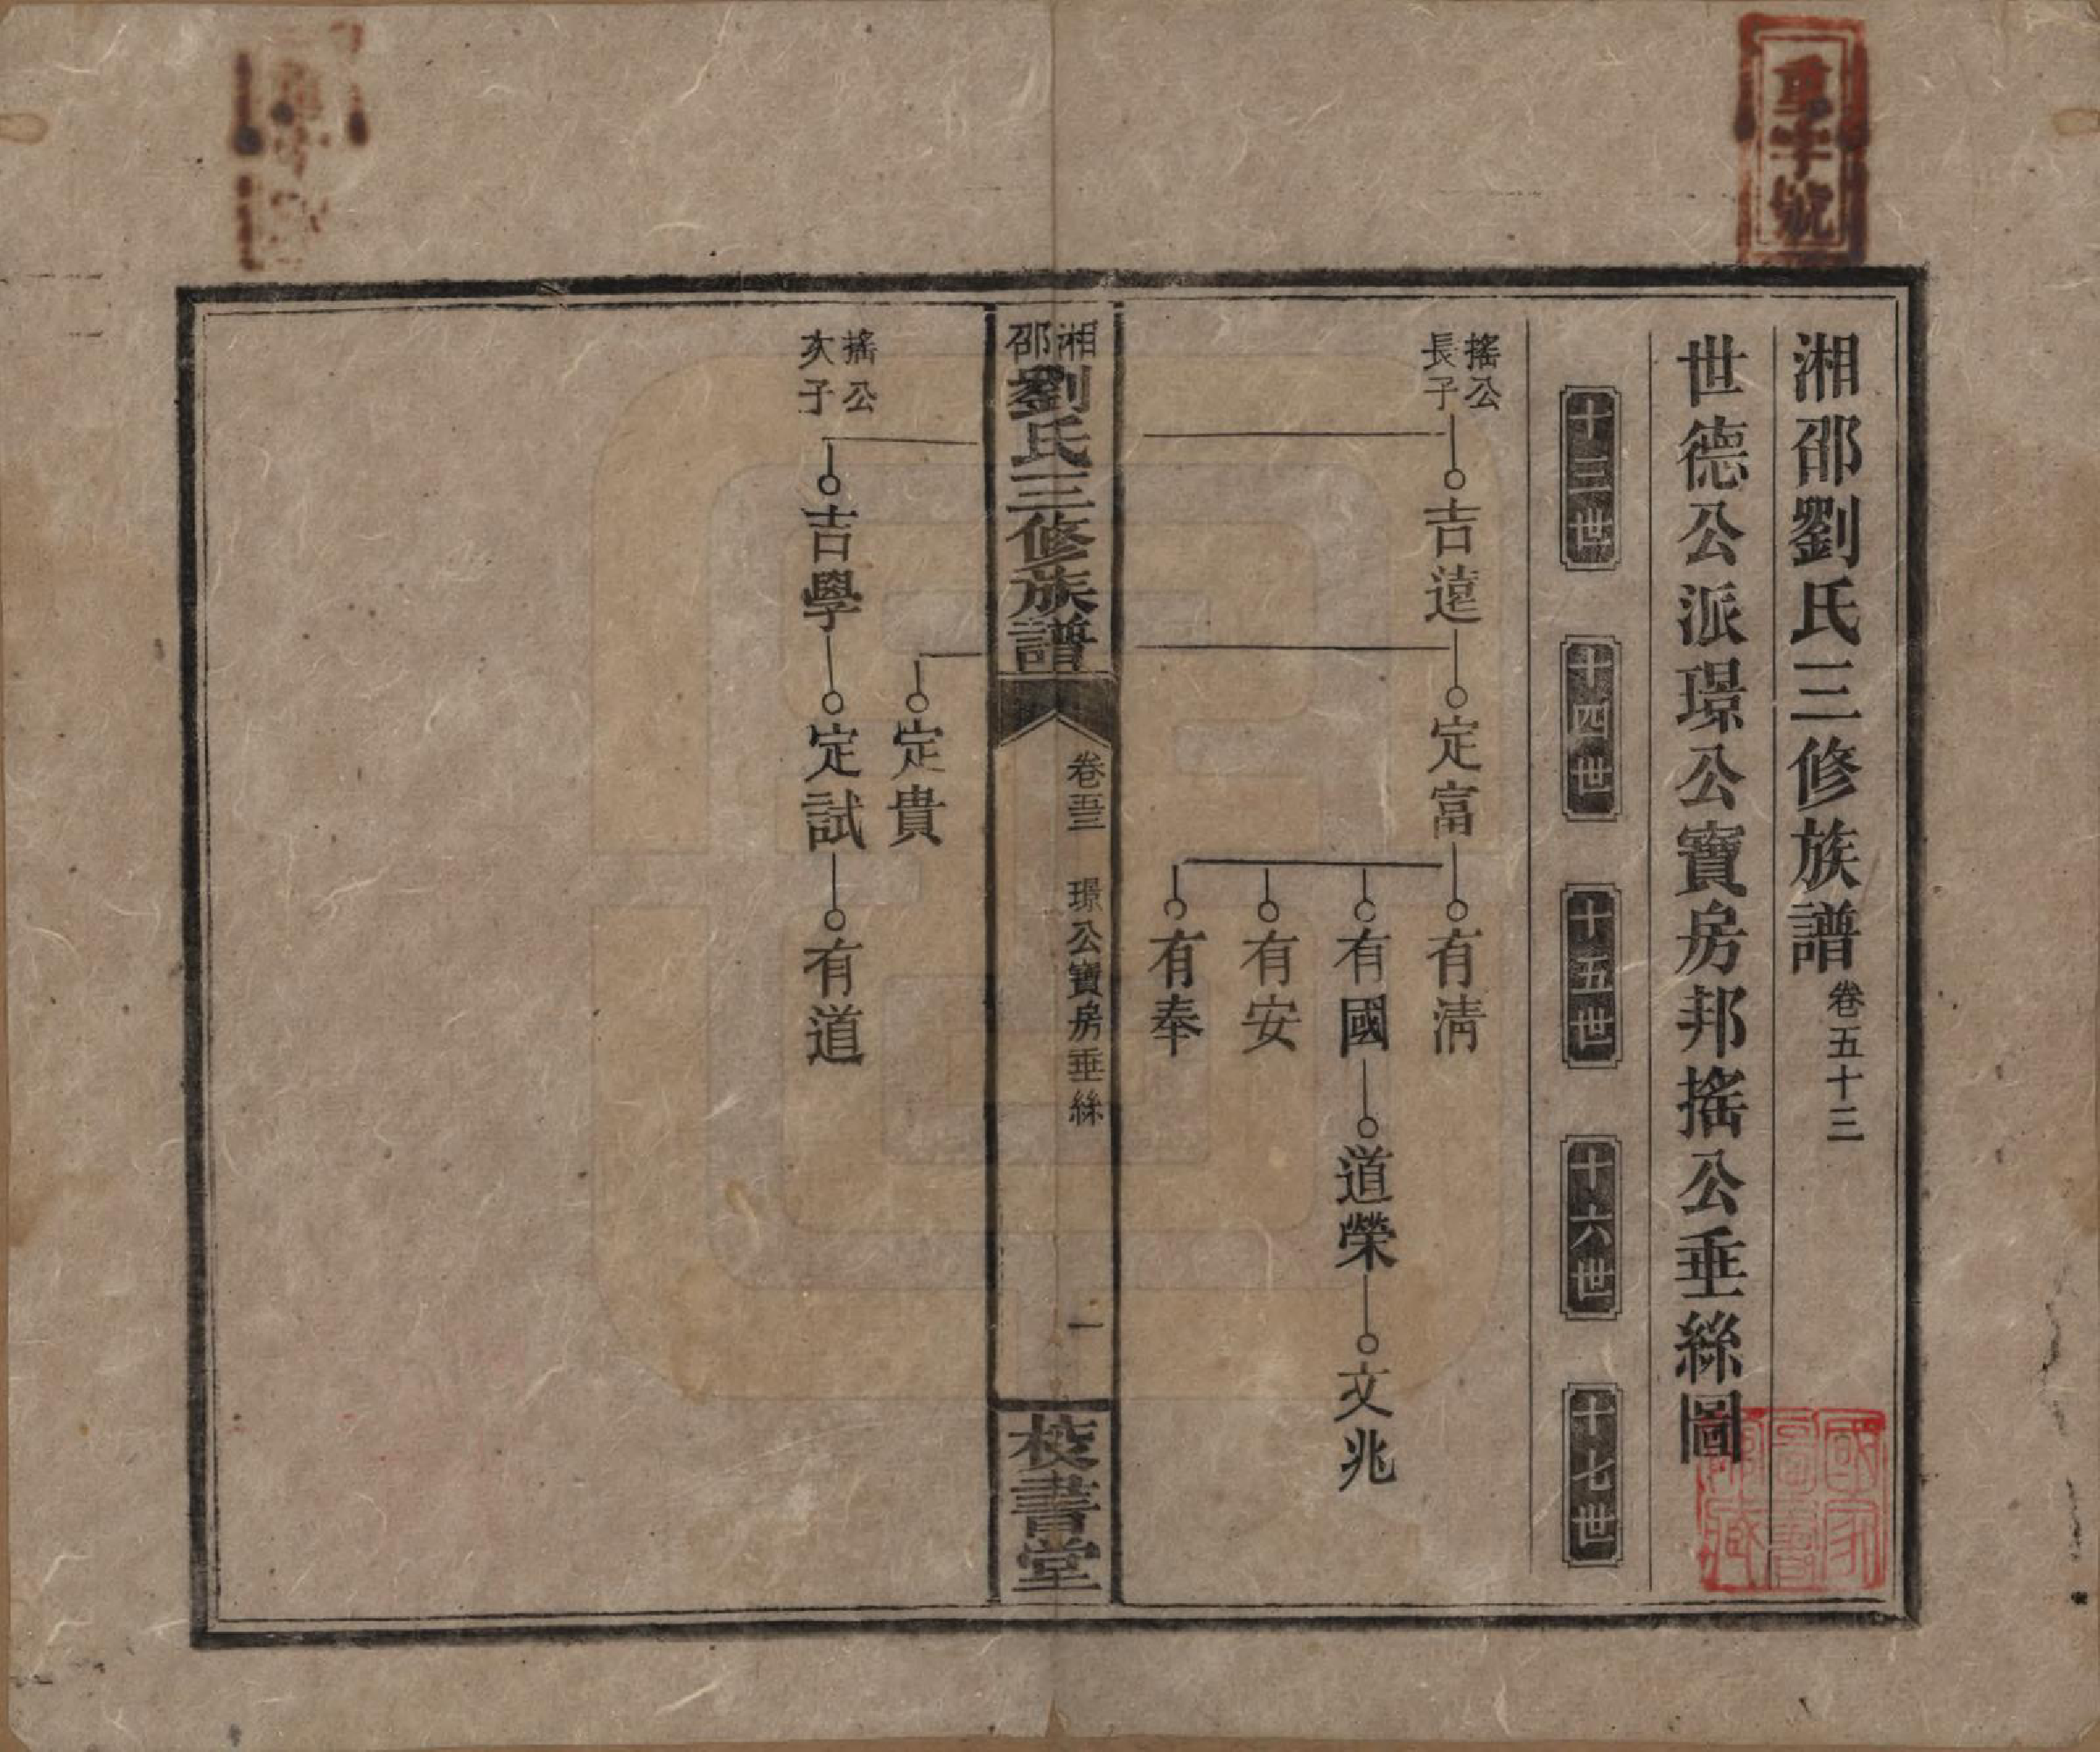 重字號
湘邵劉氏三修族譜 卷五十三
世德公派璟公寶房邦搖公垂絲圖
十三世 十四世 十五世 十六世 十七世
搖公
長子
吉遠 定富 有清
有國 道榮 文兆
有安
有奉
湘邵劉氏三修族譜 卷五三 璟公寶房垂絲 一 校書堂
定貴
搖公
次子
吉學 定試 有道
國家
圖書
館藏